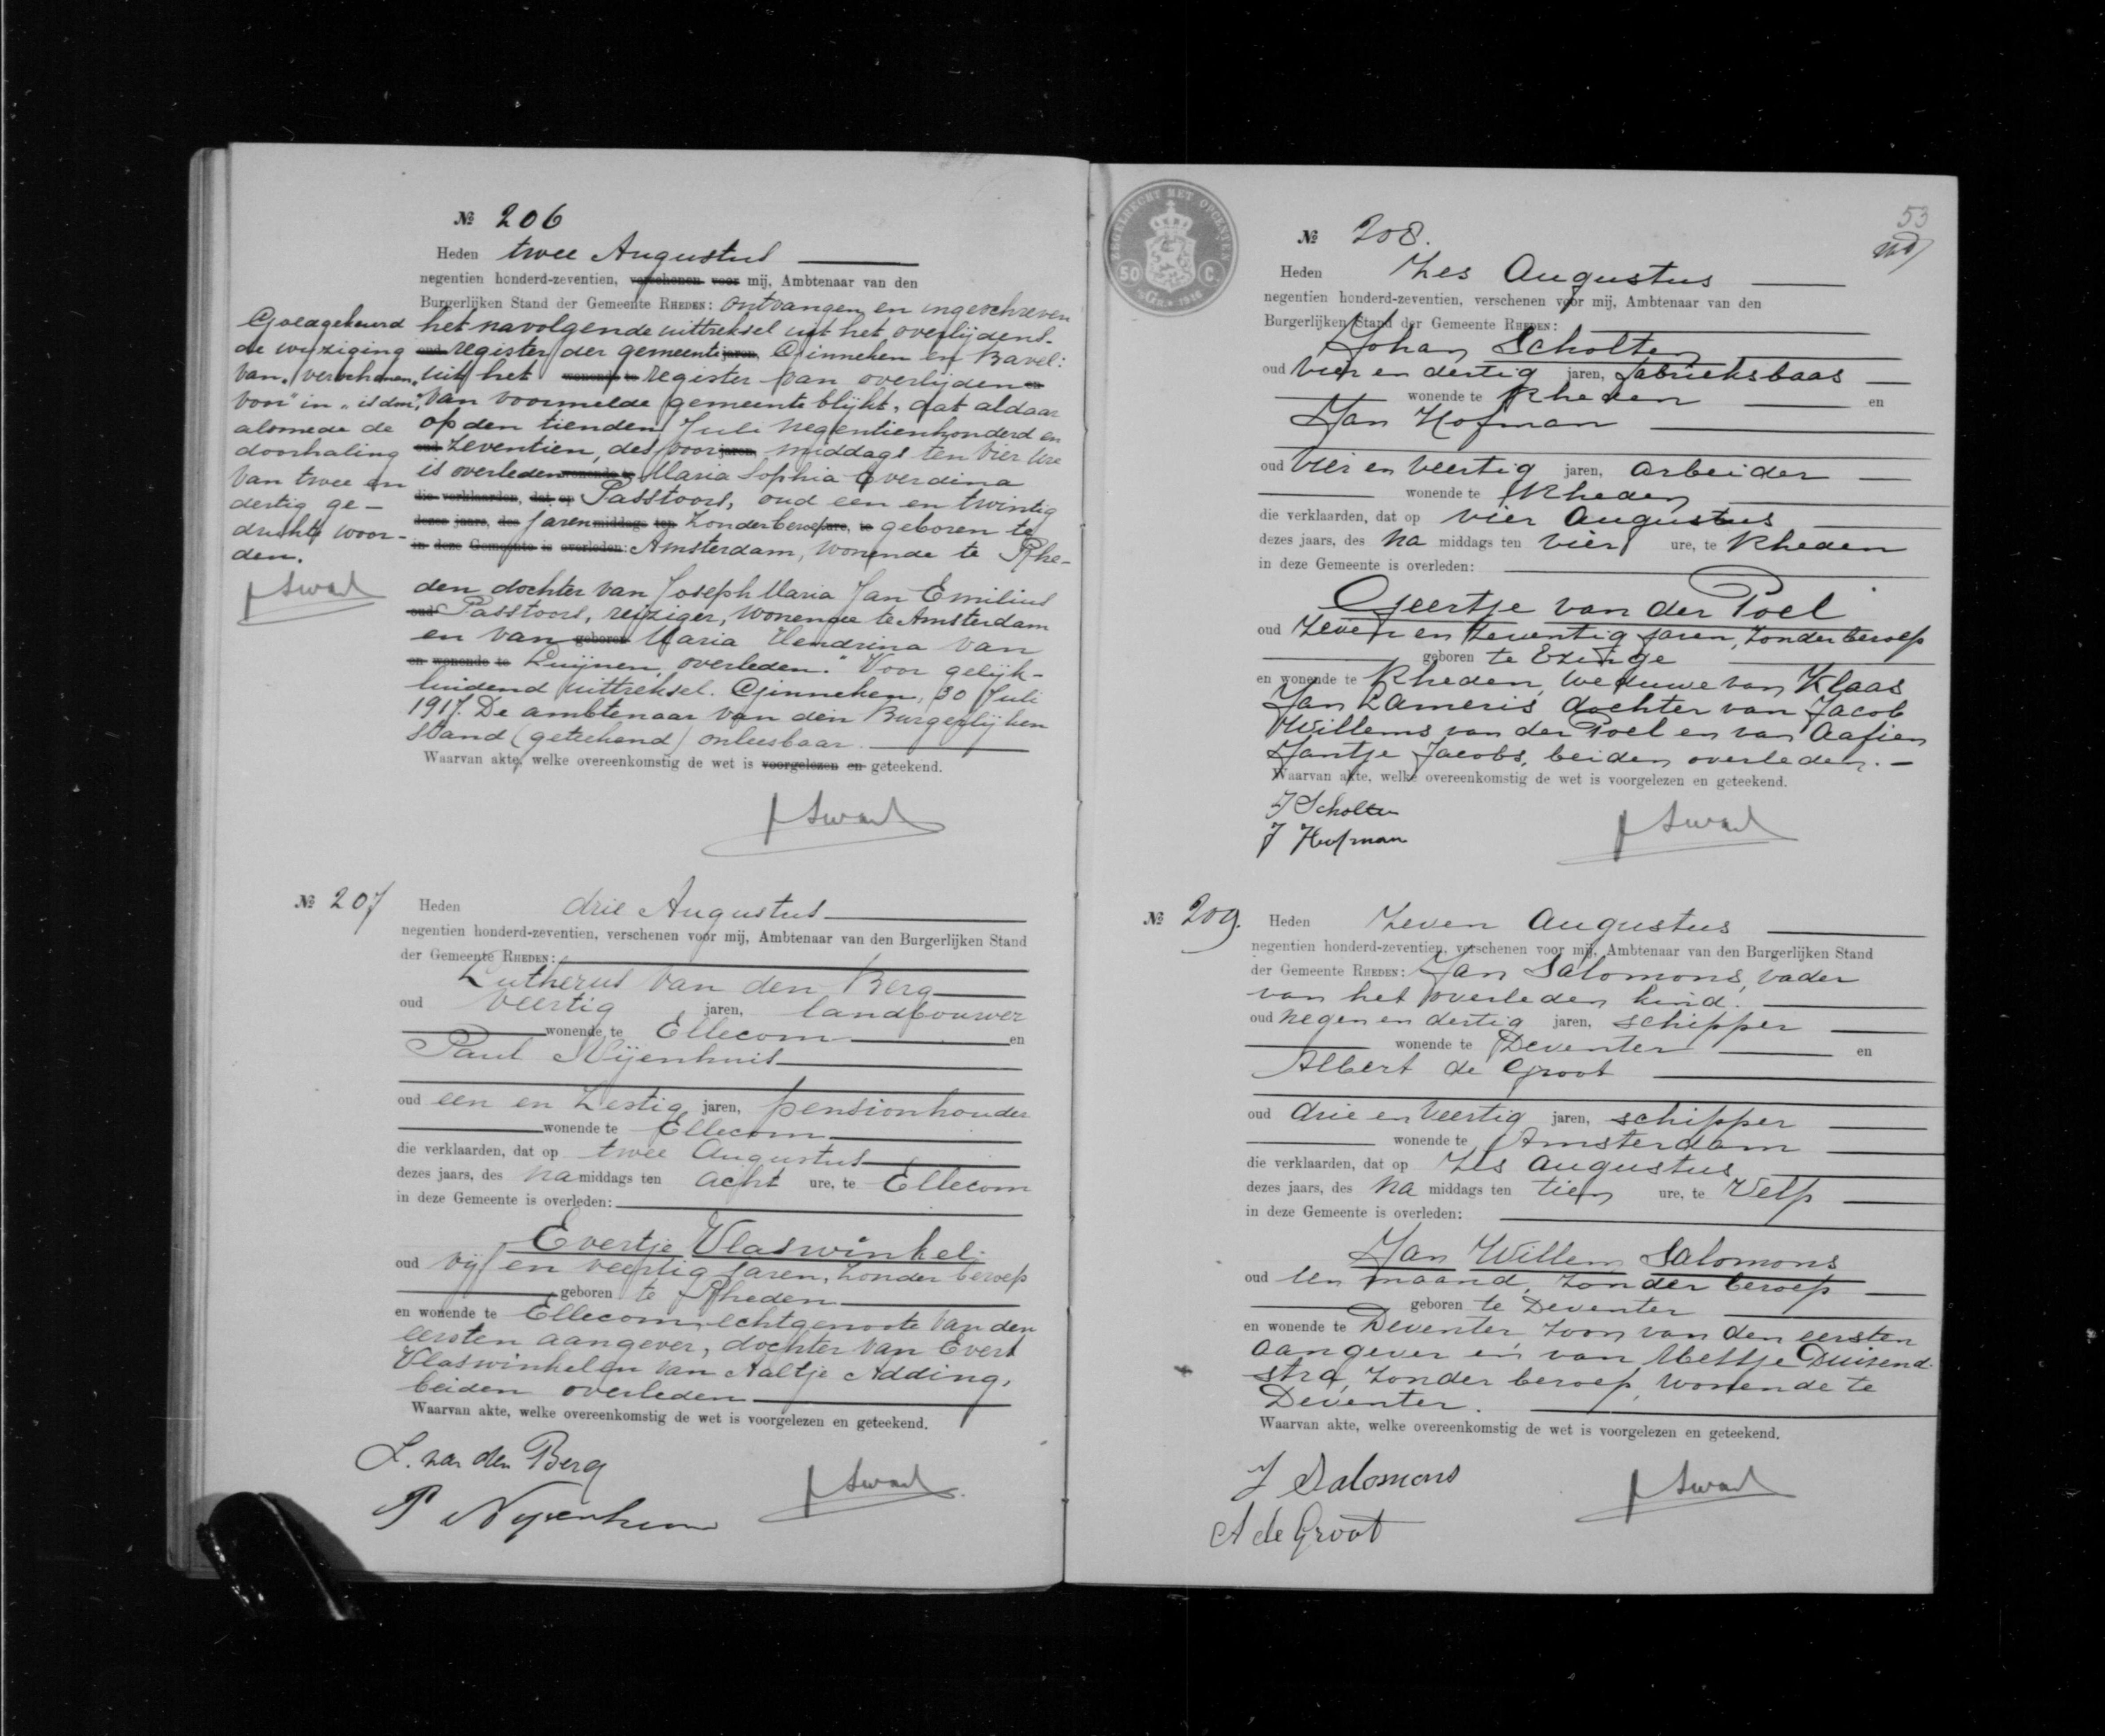 № 206
Heden twee Augustus
negentien honderd-zeventien, verschenen voor mij, Ambtenaar van den
Burgerlijken Stand der Gemeente RHEDEN: ontvangen en ingeschreven
het navolgende uittreksel uit het overlijdens-
oud register der gemeente jaren, Ginneken en Bavel:
uit het wonende te register van overlijden en
van voormelde gemeente blijkt, dat aldaar
op den tienden Juli negentienhonderd en
oud zeventien, des voor jaren middags ten vier ure
is overleden wonende te Maria Sophia Everdina
die verklaarden, dat op Passtoors, oud een en twintig
dezes jaars, des jaren middags ten zonder beroep ure, te geboren te
in deze Gemeente is overleden: Amsterdam, wonende te Rhe-
den dochter van Joseph Maria Jan Emilius
oud Passtoors, reiziger, wonende te Amsterdam
en van geboren Maria Hendrina van
en wonende te Luijnen, overleden." Voor gelijk-
luidend uittreksel. Ginneken, 30 Juli
1917. De ambtenaar van den Burgerlijken
Stand (geteekend) onleesbaar.
Waarvan akte, welke overeenkomstig de wet is voorgelezen en geteekend.
Goedgekeurd
de wijziging
van "verschenen
voor" in "is door",
alsmede de
doorhaling
van twee en
dertig ge-
drukte woor-
den.
№ 207
Heden drie Augustus
negentien honderd-zeventien, verschenen voor mij, Ambtenaar van den Burgerlijken Stand
der Gemeente RHEDEN:
Lutherus van den Berg
oud veertig jaren, landbouwer
wonende te Ellecom en
Paul Nijenhuis
oud een en zestig jaren, pensionhouder
wonende te Ellecom
die verklaarden, dat op twee Augustus
dezes jaars, des na middags ten acht ure, te Ellecom
in deze Gemeente is overleden:
Evertje Vlaswinkel
oud vijf en veertig jaren, zonder beroep
geboren te Rheden
en wonende te Ellecom, echtgenoote van den
eersten aangever, dochter van Evert
Vlaswinkel en van Aaltje Adding,
beiden overleden
Waarvan akte, welke overeenkomstig de wet is voorgelezen en geteekend.
L. van den Berg
P Nijenhuis
ZEGELRECHT MET OPCENTEN
50 C.
1916
53
№ 208.
Heden Zes Augustus
negentien honderd-zeventien, verschenen voor mij, Ambtenaar van den
Burgerlijken Stand der Gemeente RHEDEN:
Johan Scholten
oud vier en dertig jaren, fabrieksbaas
wonende te Rheden en
Jan Hofman
oud vier en veertig jaren, arbeider
wonende te Rheden
die verklaarden, dat op vier Augustus
dezes jaars, des na middags ten vier ure, te Rheden
in deze Gemeente is overleden:
Geertje van der Poel
oud zeven en zeventig jaren, zonder beroep
geboren te Ezinge
en wonende te Rheden, weduwe van Klaas
Jan Lameris dochter van Jacob
Willems van der Poel en van Aafien
Jantje Jacobs, beiden overleden.
Waarvan akte, welke overeenkomstig de wet is voorgelezen en geteekend.
J Scholten
J Hofman
№ 209.
Heden Zeven Augustus
negentien honderd-zeventien, verschenen voor mij, Ambtenaar van den Burgerlijken Stand
der Gemeente RHEDEN: Jan Salomons, vader
van het overleden kind.
oud negen en dertig jaren, schipper
wonende te Deventer en
Albert de Groot
oud drie en veertig jaren, schipper
wonende te Amsterdam
die verklaarden, dat op zes Augustus
dezes jaars, des na middags ten tien ure, te Velp
in deze Gemeente is overleden:
Jan Willem Salomons
oud een maand, zonder beroep
geboren te Deventer
en wonende te Deventer, zoon van den eersten
aangever en van Mettje Duizend-
stra, zonder beroep, wonende te
Deventer.
Waarvan akte, welke overeenkomstig de wet is voorgelezen en geteekend.
J Salomons
A de Groot